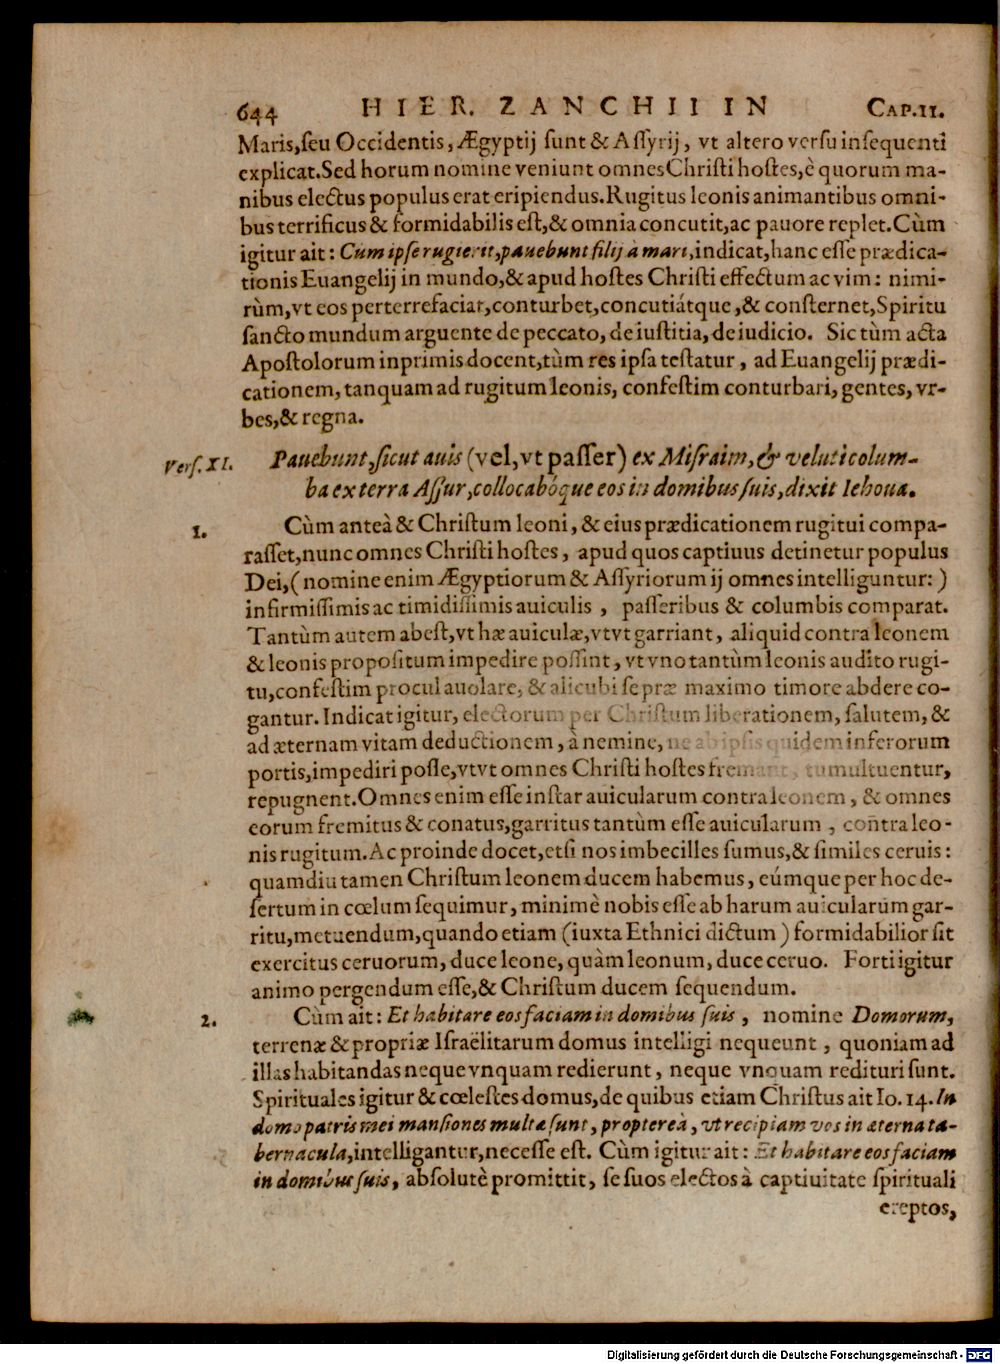 644 HIER. ZANCHII IN CAP. 11.
Maris, seu Occidentis, Ægyptij sunt & Assyrij, vt altero versu insequenti
explicat. Sed horum nomine veniunt omnes Christi hostes, è quorum ma-
nibus electus populus erat eripiendus. Rugitus leonis animantibus omni-
bus terrificus & formidabilis est, & omnia concutit, ac pauore replet. Cùm
igitur ait: Cum ipse rugierit, pauebunt filij à mari, indicat, hanc esse prædica-
tionis Euangelij in mundo, & apud hostes Christi effectum ac vim: nimi-
rùm, vt eos perterrefaciat, conturbet, concutiátque, & consternet, Spiritu
sancto mundum arguente de peccato, de iustitia, de iudicio. Sic tùm acta
Apostolorum inprimis docent, tùm res ipsa testatur, ad Euangelij prædi-
cationem, tanquam ad rugitum leonis, confestim conturbari, gentes, vr-
bes, & regna.
Vers. XI. Pauebunt, sicut auis (vel, vt passer) ex Misraim, & veluti colum-
ba ex terra Assur, collocabóque eos in domibus suis, dixit Iehoua.
1. Cùm anteà & Christum leoni, & eius prædicationem rugitui compa-
rasset, nunc omnes Christi hostes, apud quos captiuus detinetur populus
Dei, (nomine enim Ægyptiorum & Assyriorum ij omnes intelliguntur:)
infirmissimis ac timidissimis auiculis, passeribus & columbis comparat.
Tantùm autem abest, vt hæ auiculæ, vtvt garriant, aliquid contra leonem
& leonis propositum impedire possint, vt vno tantùm leonis audito rugi-
tu, confestim procul auolare, & alicubi se præ maximo timore abdere co-
gantur. Indicat igitur, electorum per Christum liberationem, salutem, &
ad æternam vitam deductionem, à nemine, ne ab ipsis quidem inferorum
portis, impediri posse, vtvt omnes Christi hostes fremant, tumultuentur,
repugnent. Omnes enim esse instar auicularum contra leonem, & omnes
eorum fremitus & conatus, garritus tantùm esse auicularum, contra leo-
nis rugitum. Ac proinde docet, etsi nos imbecilles sumus, & similes ceruis:
quamdiu tamen Christum leonem ducem habemus, eúmque per hoc de-
sertum in cœlum sequimur, minimè nobis esse ab harum auicularum gar-
ritu, metuendum, quando etiam (iuxta Ethnici dictum) formidabilior sit
exercitus ceruorum, duce leone, quàm leonum, duce ceruo. Forti igitur
animo pergendum esse, & Christum ducem sequendum.
2. Cùm ait: Et habitare eos faciam in domibus suis, nomine Domorum,
terrenæ & propriæ Israëlitarum domus intelligi nequeunt, quoniam ad
illas habitandas neque vnquam redierunt, neque vnquam redituri sunt.
Spirituales igitur & cœlestes domus, de quibus etiam Christus ait Io. 14. In
domo patris mei mansiones multæ sunt, proptereà, vt recipiam vos in æterna ta-
bernacula, intelligantur, necesse est. Cùm igitur ait: Et habitare eos faciam
in domibus suis, absolutè promittit, se suos electos à captiuitate spirituali
ereptos,
Digitalisierung gefördert durch die Deutsche Forschungsgemeinschaft - DFG